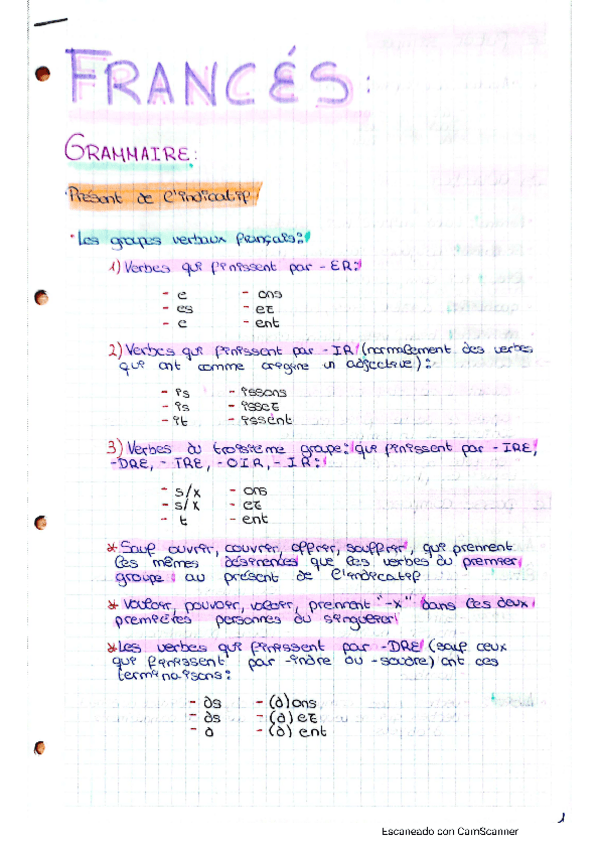 FRANCÉS:
GRAMMAIRE:
Présent de l'indicatif
· Les groupes verbaux français:
1) Verbes qui finissent par -ER:
- e - ons
- es - ez
- e - ent
2) Verbes qui finissent par -IR (normalement des verbes
qui ont comme origine un adjective):
- is - issons
- is - issez
- it - issent
3) Verbes du troisième groupe: que finissent par -IRE,
-DRE, - TRE, -OIR, - IR:
- s/x - ons
- s/x - ez
- t - ent
* Sauf ouvrir, couvrir, offrir, souffrir, qui prennent
les mêmes désinences que les verbes du premier
groupe: au présent de l'indicatif
* Vouloir, pouvoir, valoir, prennent "-x" dans les deux
premières personnes du singulier
* Les verbes qui finissent par -DRE (sauf ceux
qui finissent par -indre ou -soudre) ont ces
terminaisons:
- ds - (d) ons
- ds - (d) ez
- d - (d) ent
1
Escaneado con CamScanner